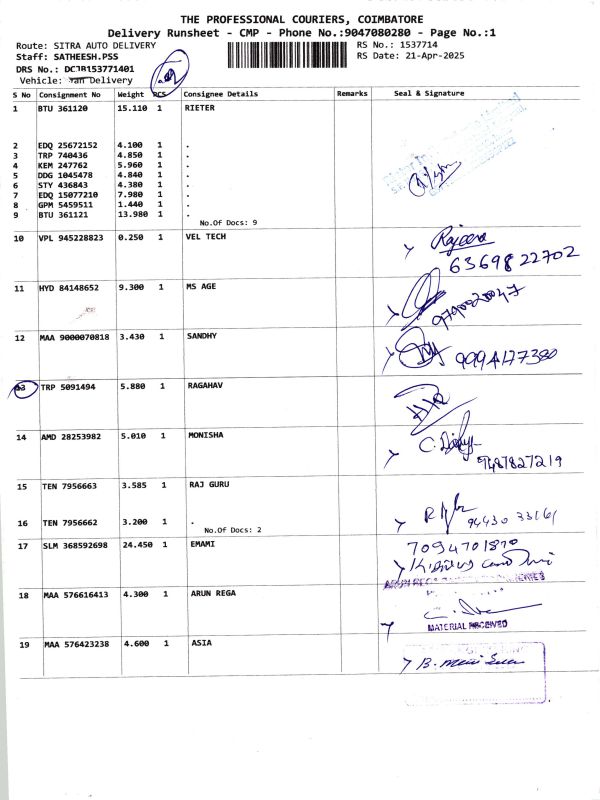 THE PROFESSIONAL COURIERS, COIMBATORE
Delivery Runsheet - CMP - Phone No.:9047080280 - Page No.:1
Route: SITRA AUTO DELIVERY RS No.: 1537714
Staff: SATHEESH.PSS RS Date: 21-Apr-2025
DRS No.: DCJB153771401
Vehicle: Van Delivery
S No Consignment No Weight PCS Consignee Details Remarks Seal & Signature
1 BTU 361120 15.110 1 RIETER
2 EDQ 25672152 4.100 1 .
3 TRP 740436 4.850 1 .
4 KEM 247762 5.960 1 .
5 DDG 1045478 4.840 1 .
6 STY 436843 4.380 1 .
7 EDQ 15077210 7.980 1 .
8 GPM 5459511 1.440 1 .
9 BTU 361121 13.980 1 .
No.Of Docs: 9
10 VPL 945228823 0.250 1 VEL TECH
63698 22702
11 HYD 84148652 9.300 1 MS AGE
12 MAA 9000070818 3.430 1 SANDHY
9994177380
13 TRP 5091494 5.880 1 RAGAHAV
14 AMD 28253982 5.010 1 MONISHA
9487827219
15 TEN 7956663 3.585 1 RAJ GURU
16 TEN 7956662 3.200 1 .
94430 33161
No.Of Docs: 2
17 SLM 368592698 24.450 1 EMAMI 7094701870
18 MAA 576616413 4.300 1 ARUN REGA
MATERIAL RECEIVED
19 MAA 576423238 4.600 1 ASIA